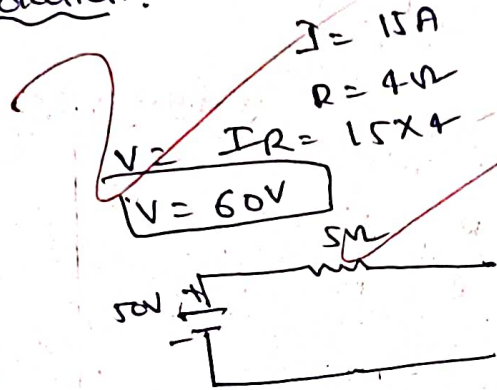 I = 15A
R = 4Ω
V = IR = 15×4
V = 60V
5Ω
50V + -